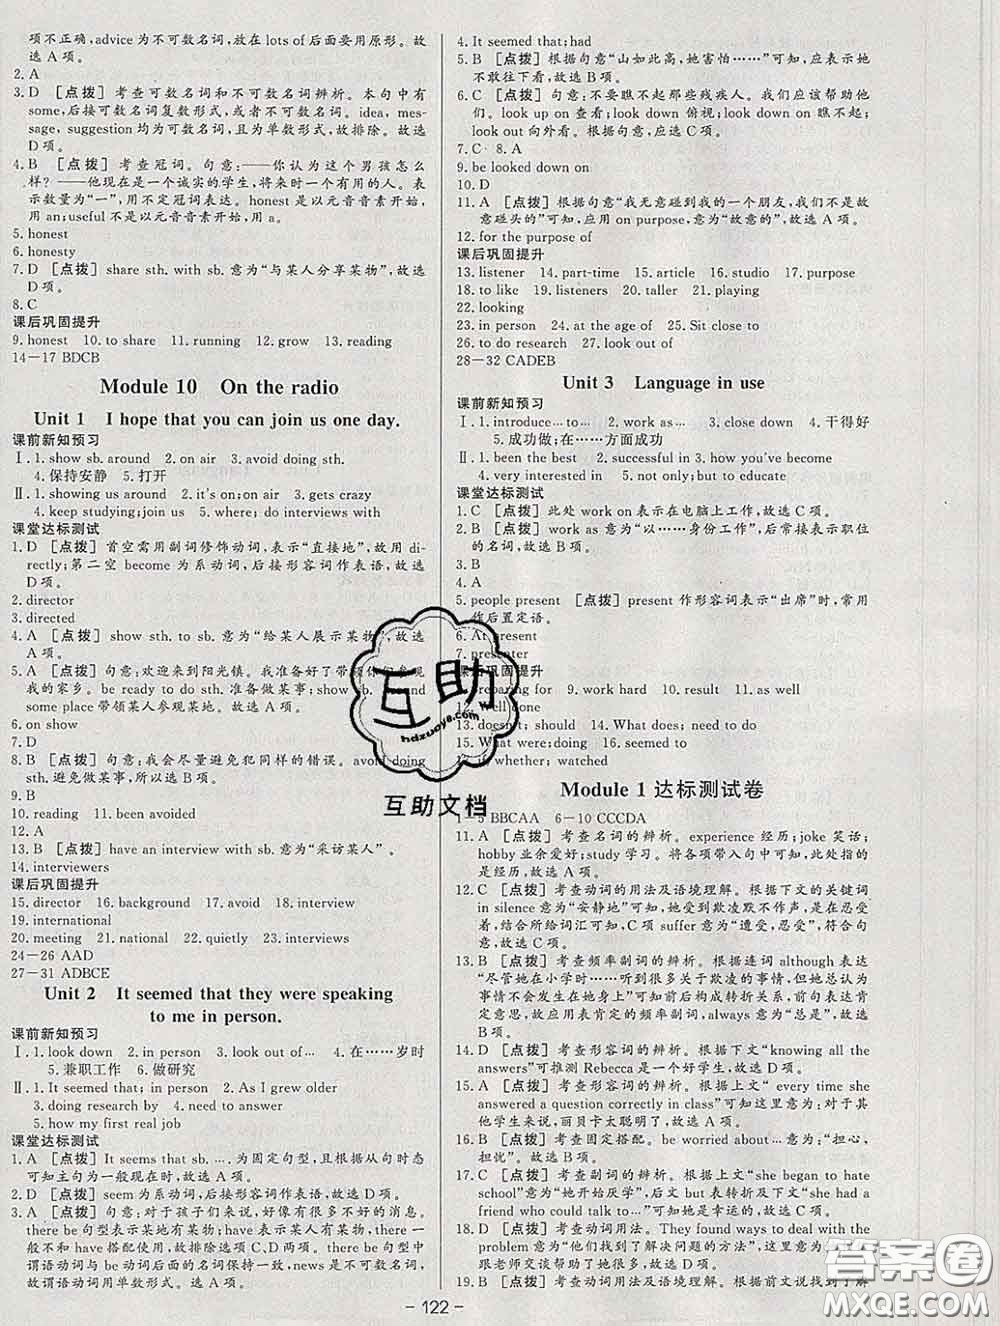 项不正确,advice 为不可数名词,放在 lots of 后面要用原形。故
选 A 项。
2. A
3. D [点拨] 考查可数名词和不可数名词辨析。本句中有
some,后接可数名词复数形式,或者不可数名词。idea, mes-
sage, suggestion 均为可数名词,且为单数形式,故排除。故选
D 项。
4. B [点拨] 考查冠词。句意:——你认为这个男孩怎么
样?——他现在是一个诚实的学生,将来会是一个有用的人。表
示数量为“一”,用不定冠词表达。honest 是以元音音素开始,
用 an;useful 不是以元音音素开始,用 a。
5. honest
6. honesty
7. D [点拨] share sth. with sb. 意为“与某人分享某物”,故选
D 项。
8. C
课后巩固提升
9. honest 10. to share 11. running 12. grow 13. reading
14—17 BDCB
Module 10 On the radio
Unit 1 I hope that you can join us one day.
课前新知预习
Ⅰ. 1. show sb. around 2. on air 3. avoid doing sth.
4. 保持安静 5. 打开
Ⅱ. 1. showing us around 2. it's on; on air 3. gets crazy
4. keep studying; join us 5. where; do interviews with
课堂达标测试
1. D [点拨] 首空需用副词修饰动词,表示“直接地”,故用 di-
rectly;第二空 become 为系动词,后接形容词作表语,故选
D 项。
2. director
3. directed
4. A [点拨] show sth. to sb. 意为“给某人展示某物”,故选
A 项。
5. A [点拨] 句意:欢迎来到阳光镇。我准备好了带领你们参观
我的家乡。be ready to do sth. 准备做某事;show sb. around
some place 带领某人参观某地。故选 A 项。
6. on show
7. D
8. B [点拨] 句意:我会尽量避免犯同样的错误。avoid doing
sth. 避免做某事,所以选 B 项。
9. B
10. reading 11. been avoided
12. A
13. B [点拨] have an interview with sb. 意为“采访某人”。
14. interviewers
课后巩固提升
15. director 16. background 17. avoid 18. interview
19. international
20. meeting 21. national 22. quietly 23. interviews
24—26 AAD
27—31 ADBCE
Unit 2 It seemed that they were speaking
to me in person.
课前新知预习
Ⅰ. 1. look down 2. in person 3. look out of… 4. 在……岁时
5. 兼职工作 6. 做研究
Ⅱ. 1. It seemed that; in person 2. As I grew older
3. doing research by 4. need to answer
5. how my first real job
课堂达标测试
1. A [点拨] It seems that sb. …. 为固定句型,且从句时态
可知主句为一般现在时。故选 A 项。
2. D [点拨] seem 为系动词,后接形容词作表语,故选 D 项。
3. A [点拨] 句意:对于孩子们来说,好像有很多不好的消息。
there be 句型表示某地有某物;have 表示某人有某物,there 一
般不和 have 搭配使用,故排除选项 C、D 两项。there be 句型中
谓语动词与 be 动词后面的名词保持一致,news 为不可数名词,
故谓语动词用单数形式。选 A 项。
4. It seemed that; had
5. B [点拨] 根据句意“山如此高,她害怕……”可知,应表示她
不敢往下看,故选 B 项。
6. C [点拨] 句意:不要瞧不起那些残疾人。我们应该帮助他
们。look up on 查看;look down 俯视;look down on 瞧不起;
look out 向外看。根据句意,应选 C 项。
7. C 8. A
9. be looked down on
10. D
11. A [点拨] 根据句意“我无意碰到我的一个朋友,我们不是故
意碰头的”可知,应用 on purpose,意为“故意的”,故选 A 项。
12. for the purpose of
课后巩固提升
13. listener 14. part-time 15. article 16. studio 17. purpose
18. to like 19. listeners 20. taller 21. playing
22. looking
23. in person 24. at the age of 25. Sit close to
26. to do research 27. look out of
28—32 CADEB
Unit 3 Language in use
课前新知预习
Ⅰ. 1. introduce…to… 2. work as… 3. close down 4. 干得好
5. 成功做;在……方面成功
Ⅱ. 1. been the best 2. successful in 3. how you've become
4. very interested in 5. not only; but to educate
课堂达标测试
1. C [点拨] 此处 work on 表示在电脑上工作,故选 C 项。
2. B [点拨] work as 意为“以……身份工作”,后常接表示职位
的名词,故选 B 项。
3. B
4. A
5. people present [点拨] present 作形容词表示“出席”时,常用
作后置定语。
6. At present
7. presenter
课后巩固提升
preparing for 9. work hard 10. result 11. as well
Well done
13. doesn't; should 14. What does; need to do
15. What were; doing 16. seemed to
if whether; watched
Module 1 达标测试卷
1—5 BBCAA 6—10 CCCDA
11. A [点拨] 考查名词的辨析。experience 经历;joke 笑话;
hobby 业余爱好;study 学习。将各项带入句中可知,此处指的
是经历。故选 A 项。
12. C [点拨] 考查动词的用法及语境理解。根据下文的关键词
in silence 意为“安静地”可知,她受到欺凌默不作声,是在忍受
着,结合所给词汇可知只有 suffer 意为“遭受,忍受”,符合句
意,故选 C 项。
13. B [点拨] 考查频率副词的辨析。根据连词 although 表达
“尽管她在小学时……听到很多关于欺凌的事情,但她总认为
事情不会发生在她身上”可知前后构成转折关系,前句表达肯
定意思,故应用表肯定的频率副词,always 意为“总是”,故选
B 项。
14. D [点拨] 考查形容词的辨析。根据下文“knowing all the
answers”可推测 Rebecca 是一个好学生,故选 D 项。
15. A [点拨] 考查形容词的辨析。根据上文“every time she
answered a question correctly in class”可知这里意为:对于其
他学生来说,丽贝卡太聪明了,故选 A 项。
16. B [点拨] 考查固定搭配。be worried about…意为:“担心,
担忧”。故选 B 项。
17. C [点拨] 考查副词的辨析。根据上文“she began to hate
school”意为“她开始厌学”,后文 but 表转折及下文“she had a
friend who could talk to…”可知她是幸运的,故选 C 项。
18. D [点拨] 考查动词用法。They found ways to deal with the
problem 意为“他们找到了解决问题的方法”,这里意为
跟老师交谈帮助了她很多。故选 D 项。
19. B [点拨] 考查动词用法及语境理解。根据前文说找到了解
－122－
互助
hdzuoye.com
互助文档
答案圈
MXQE.COM